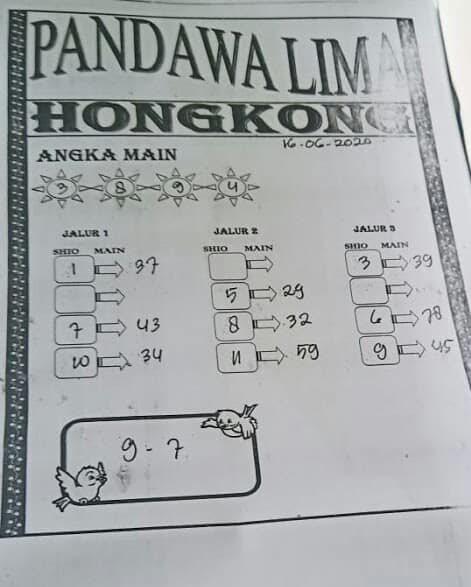 PANDAWA LIMA
HONGKONG
16-06-2020
ANGKA MAIN
3 8 9 4
JALUR 1 JALUR 2 JALUR 3
SHIO MAIN SHIO MAIN SHIO MAIN
1 37 3 39
5 29
7 43 8 32 6 78
10 34 11 59 9 45
9 - 7